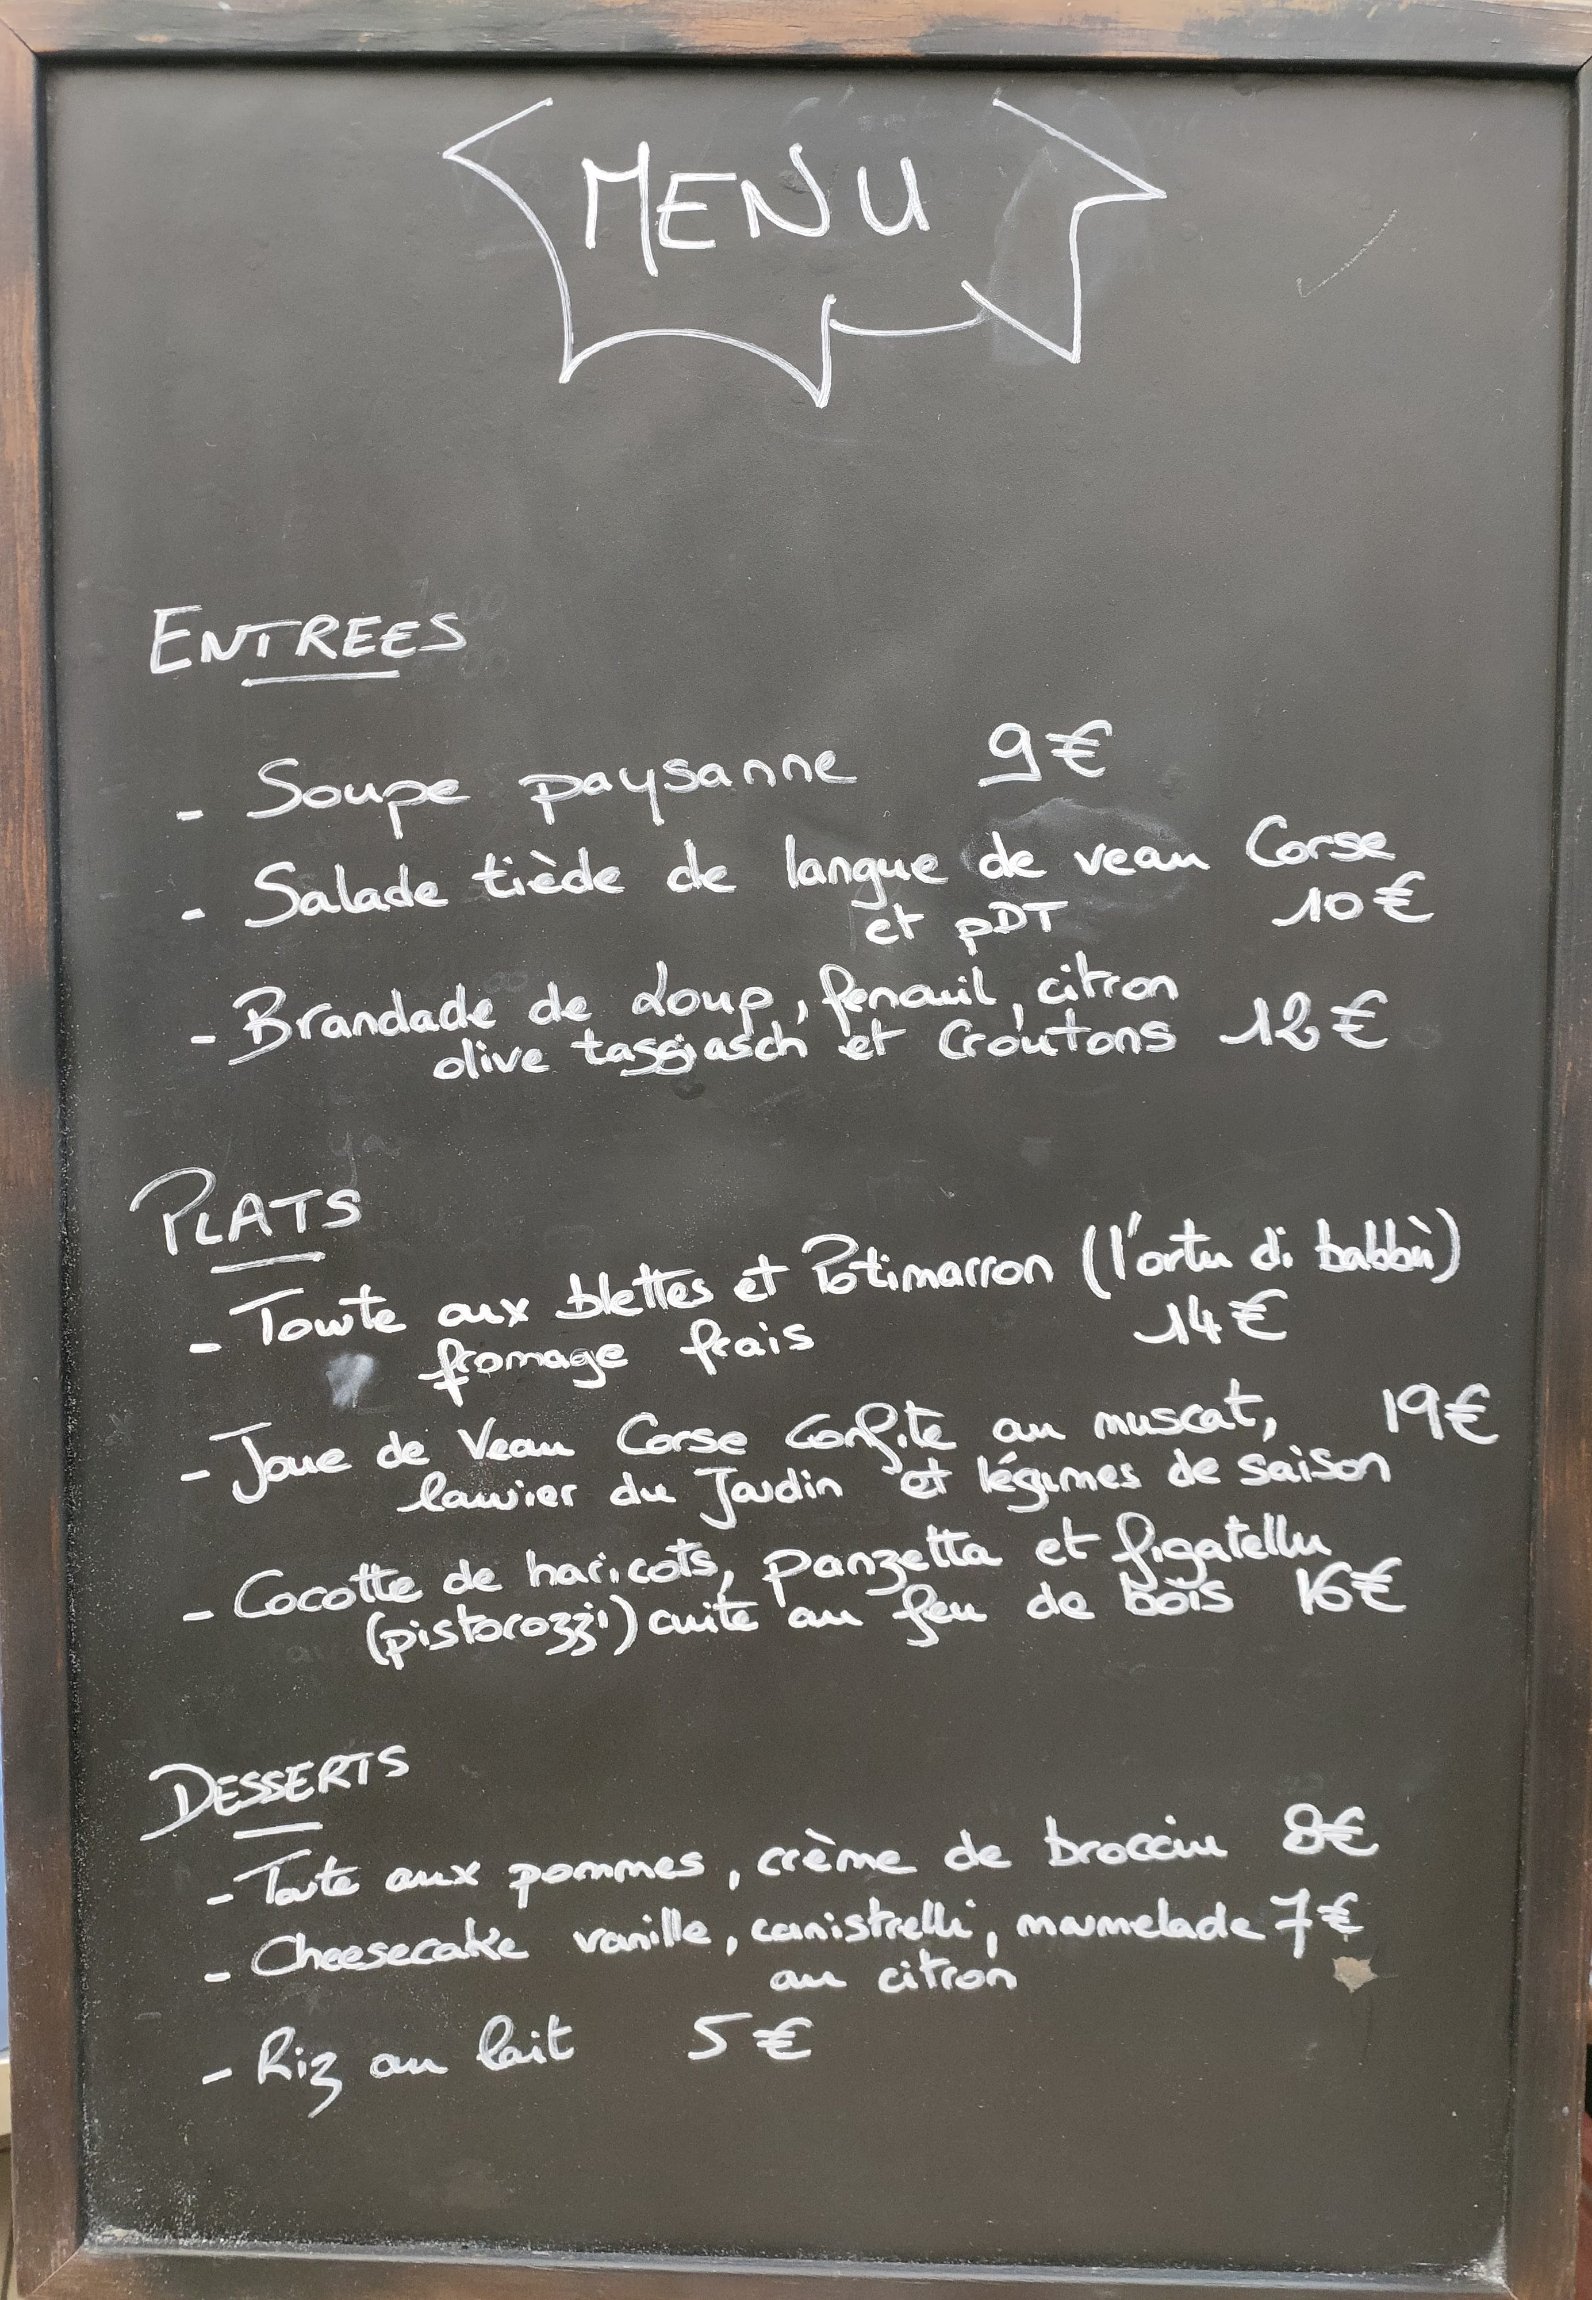 MENU
ENTREES
- Soupe paysanne 9€
- Salade tiède de langue de veau Corse
et PDT 10€
- Brandade de Loup, fenouil, citron
olive tasgiasch et Croûtons 12€
PLATS
- Tourte aux blettes et Potimarron (l'ortu di babbù)
fromage frais 14€
- Joue de Veau Corse Confite au muscat, 19€
laurier du Jardin et légumes de saison
- Cocotte de haricots, panzetta et figatellu
(pistorozzi) cuite au feu de bois 16€
DESSERTS
- Tarte aux pommes, crème de brocciu 8€
- Cheesecake vanille, canistrelli, marmelade 7€
au citron
- Riz au lait 5€